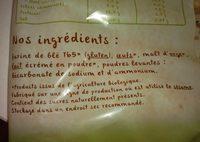 Nos ingrédients :
Farine de blé T65* (gluten), œufs*, malt d'orge*,
lait écrémé en poudre*, poudres levantes :
bicarbonate de sodium et d'ammonium.
*Produits issus de l'agriculture biologique.
Fabriqué sur une ligne de production où est utilisé le sésame.
Contient des sucres naturellement présents.
Stockage dans un endroit sec recommandé.